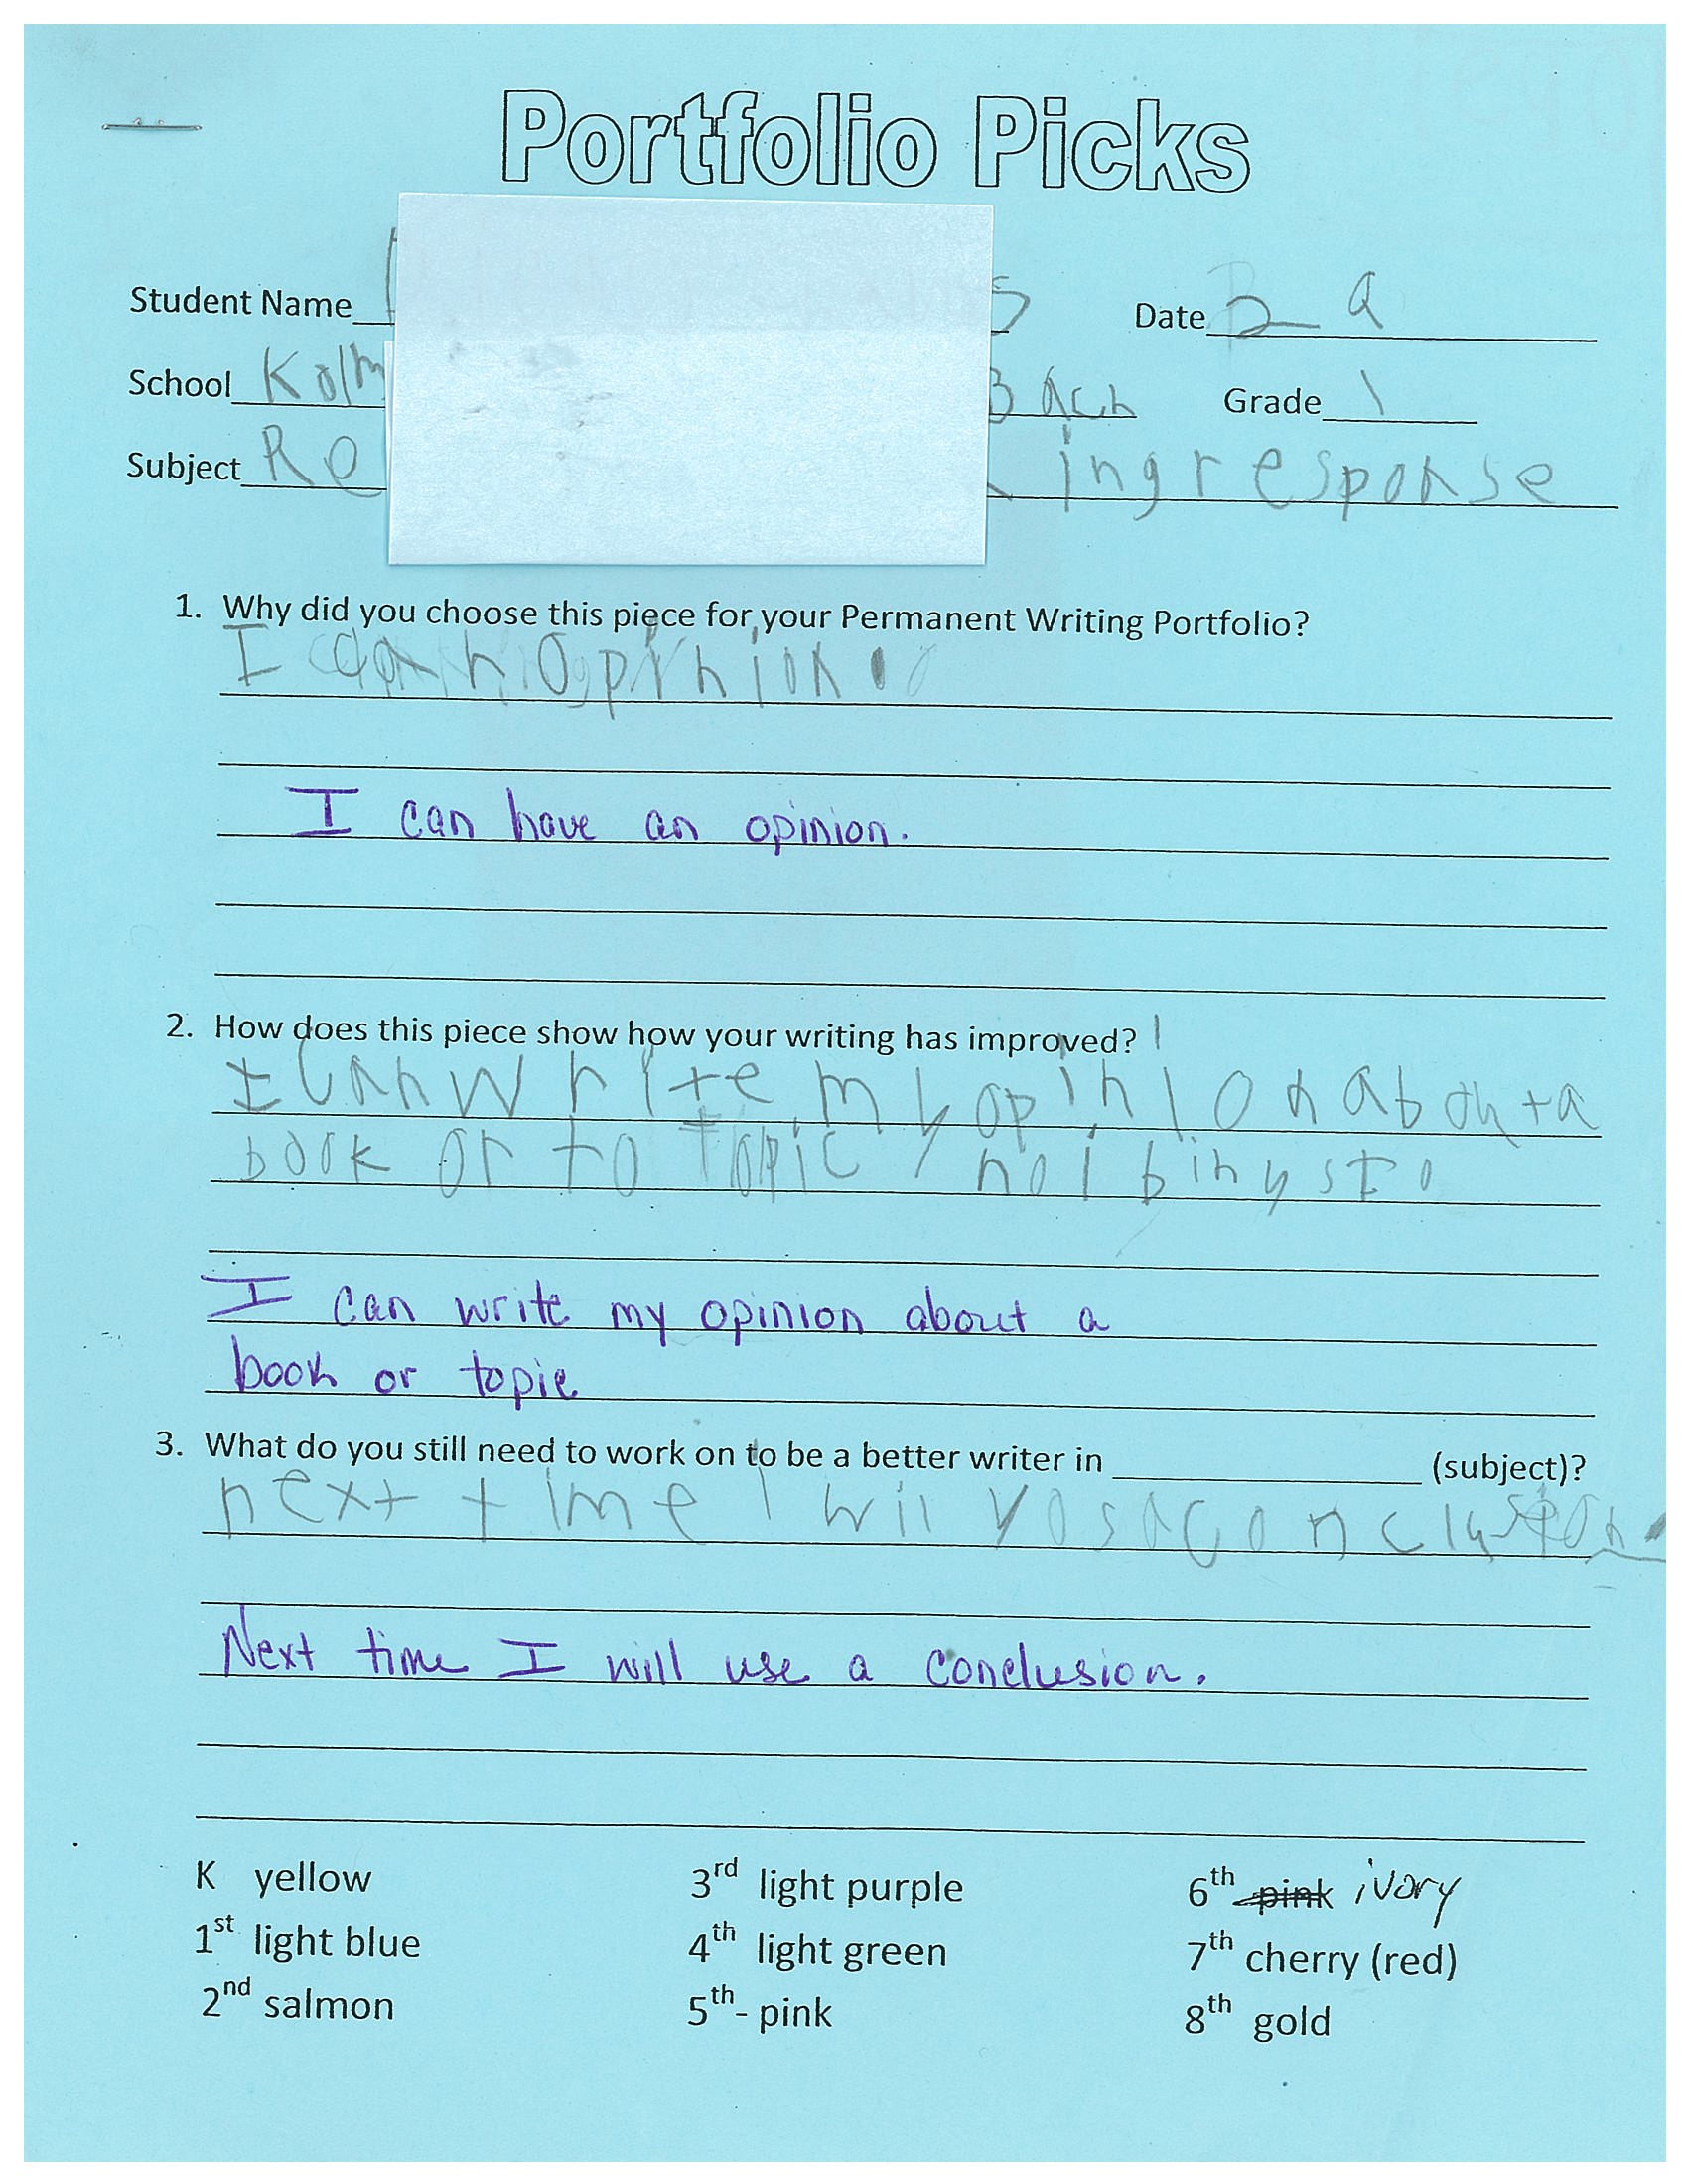 Portfolio Picks
Student Name Date 2 - 9
School Kolm Bach Grade 1
Subject Re ing response
1. Why did you choose this piece for your Permanent Writing Portfolio?
I can opinion.
I can have an opinion.
2. How does this piece show how your writing has improved?
I can write my opinion about a
book or to topic
I can write my opinion about a
book or topic
3. What do you still need to work on to be a better writer in ____________ (subject)?
next time I wil yos a conclusion.
Next time I will use a conclusion.
K yellow 3rd light purple 6th pink ivory
1st light blue 4th light green 7th cherry (red)
2nd salmon 5th- pink 8th gold